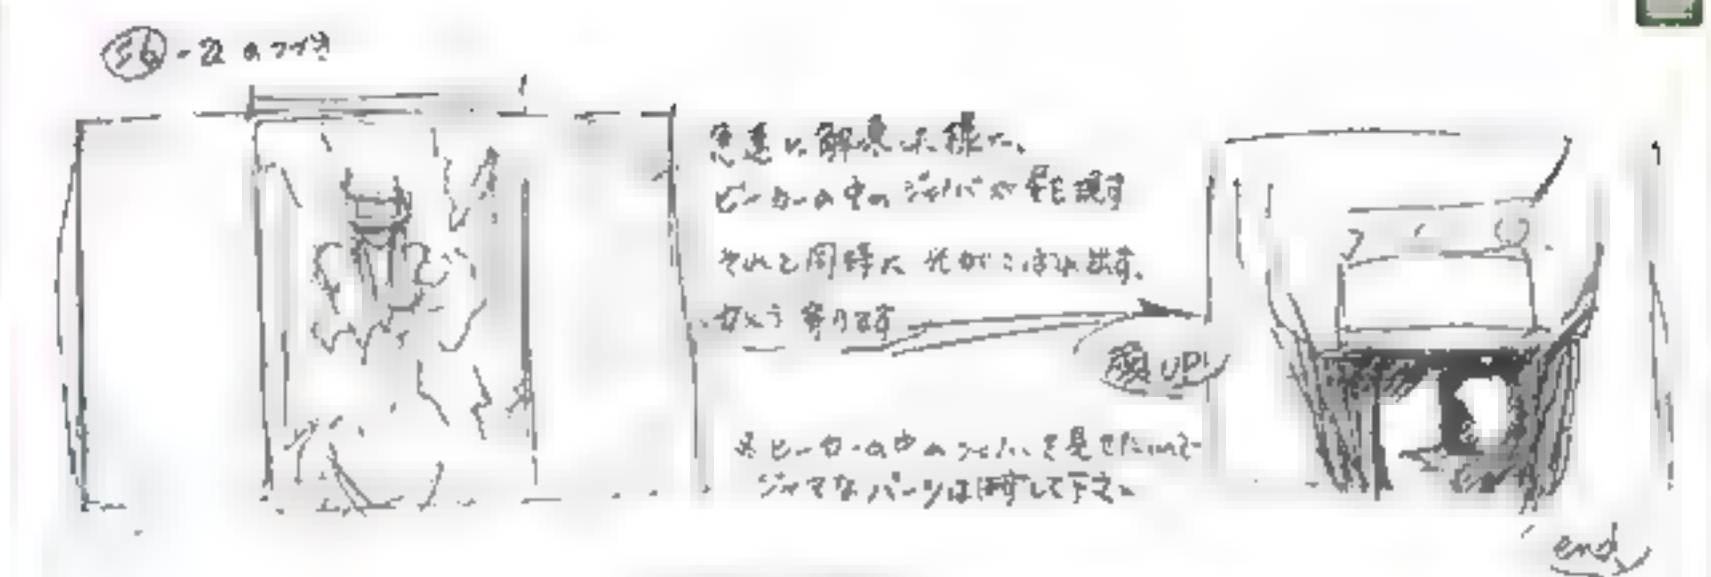 56-2のつづき
急速に解凍した様に、
ビーカーの中のジャバが出現す
それと同時に光がこぼれ出す。
カメラ寄ります
顔UP!
※ビーカーの中の を見せたいので
ジャマなパーツは消して下さい
end